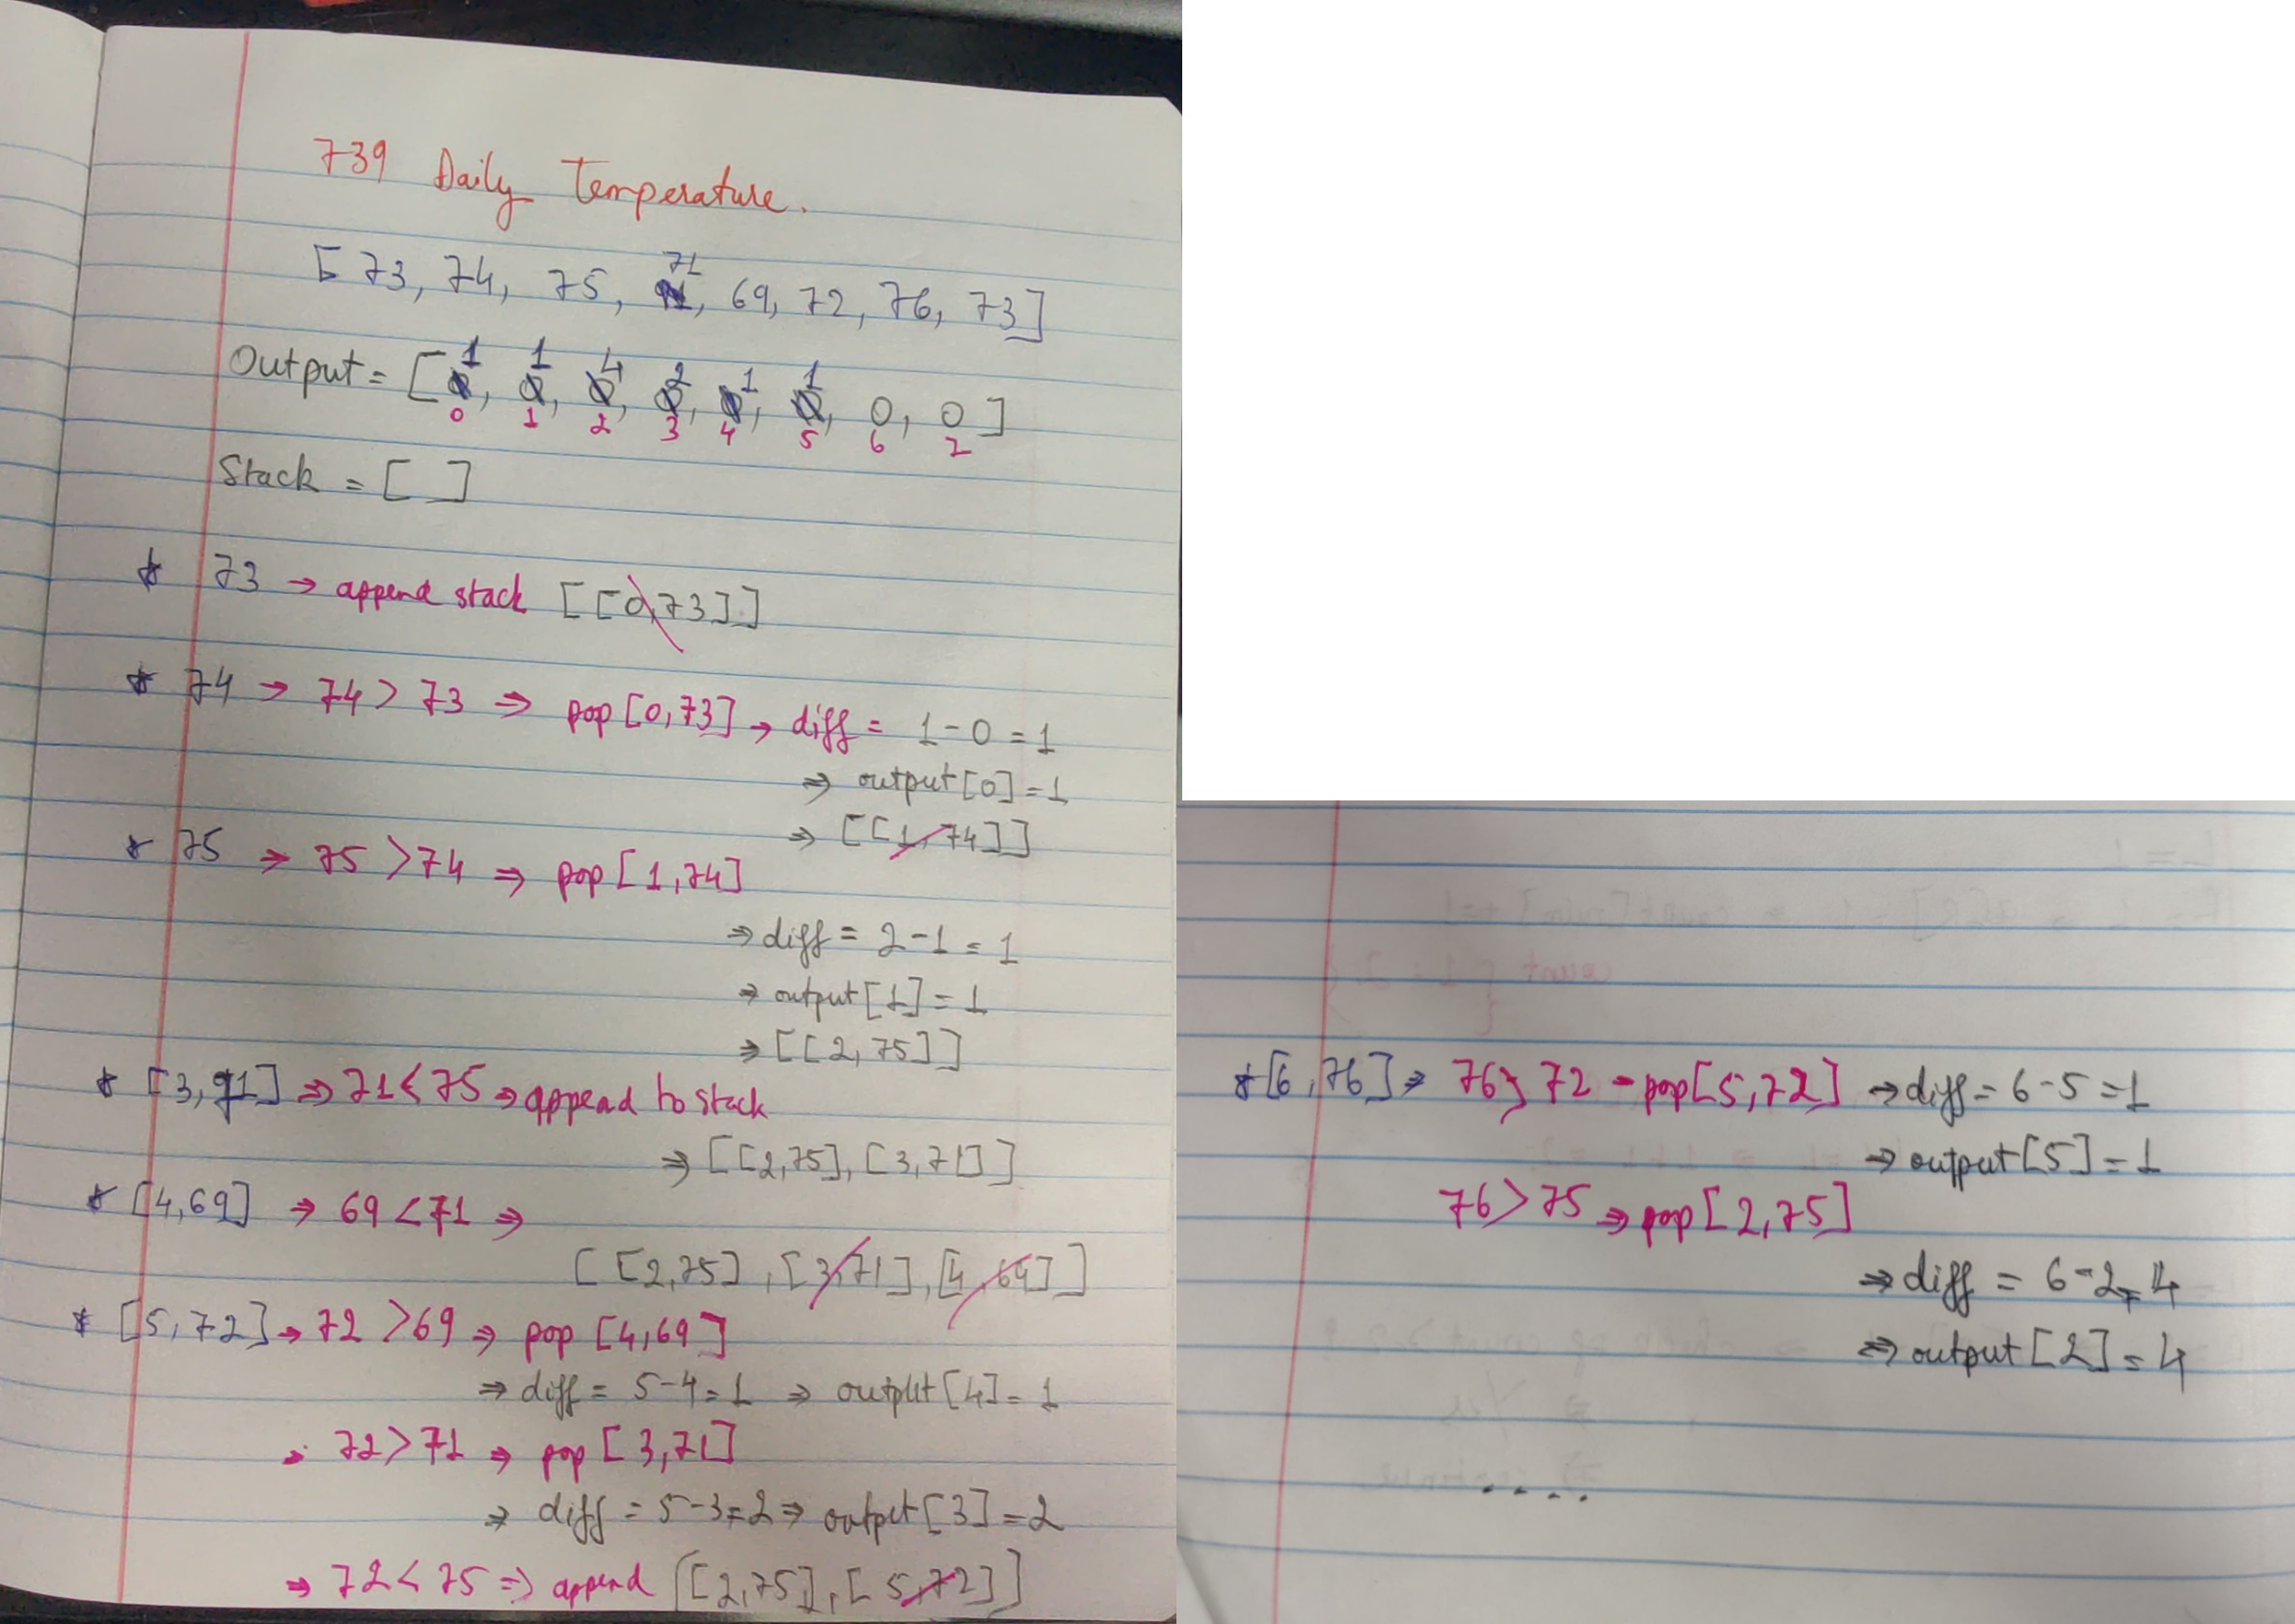 739 Daily Temperature.
[73, 74, 75, 71, 69, 72, 76, 73]
Output = [1, 1, 4, 2, 1, 1, 0, 0]
0 1 2 3 4 5 6 7
Stack = [ ]
* 73 → append stack [[0,73]]
* 74 → 74 > 73 ⇒ pop [0,73] → diff = 1 - 0 = 1
⇒ output[0] = 1
⇒ [[1,74]]
* 75 ⇒ 75 > 74 ⇒ pop [1,74]
⇒ diff = 2 - 1 = 1
⇒ output[1] = 1
⇒ [[2,75]]
* [3,71] ⇒ 71 < 75 ⇒ append to stack
⇒ [[2,75], [3,71]]
* [4,69] ⇒ 69 < 71 ⇒
[[2,75], [3,71], [4,69]]
* [5,72] → 72 > 69 ⇒ pop [4,69]
⇒ diff = 5 - 4 = 1 ⇒ output[4] = 1
→ 72 > 71 ⇒ pop [3,71]
⇒ diff = 5 - 3 = 2 ⇒ output[3] = 2
⇒ 72 < 75 ⇒ append [[2,75], [5,72]]
* [6,76] ⇒ 76 > 72 - pop[5,72] → diff = 6 - 5 = 1
⇒ output[5] = 1
76 > 75 ⇒ pop [2,75]
⇒ diff = 6 - 2 = 4
⇒ output[2] = 4
. . . .